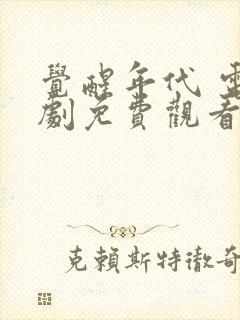 覺醒年代 電
劇免費觀看
克賴斯特徹奇